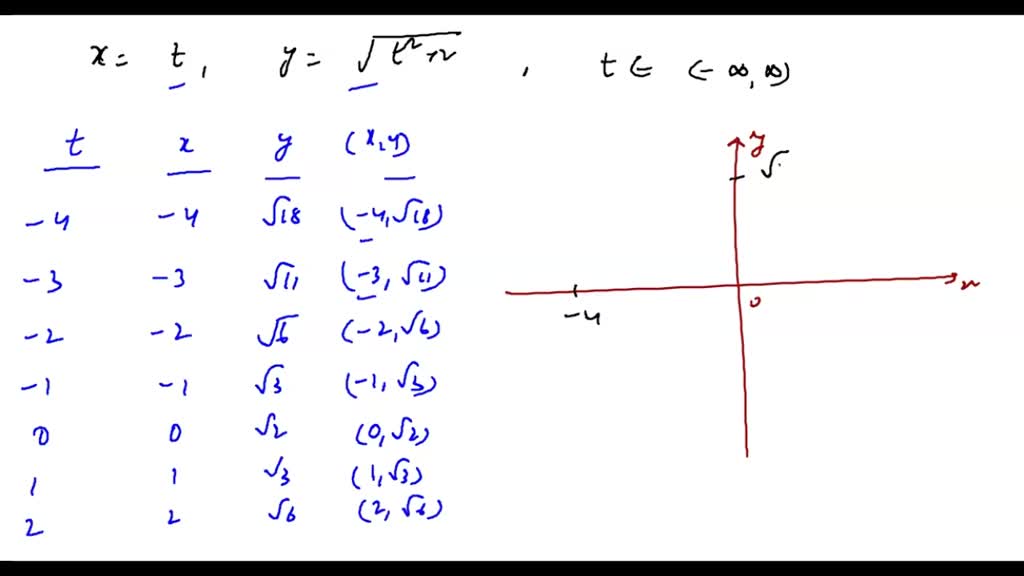 x = t, y = √(t²+2), t ∈ (-∞, ∞)
t x y (x,y)
-4 -4 √18 (-4,√18)
-3 -3 √11 (-3, √11)
-2 -2 √6 (-2,√6)
-1 -1 √3 (-1,√3)
0 0 √2 (0,√2)
1 1 √3 (1,√3)
2 2 √6 (2,√6)
y
√
x
0
-4